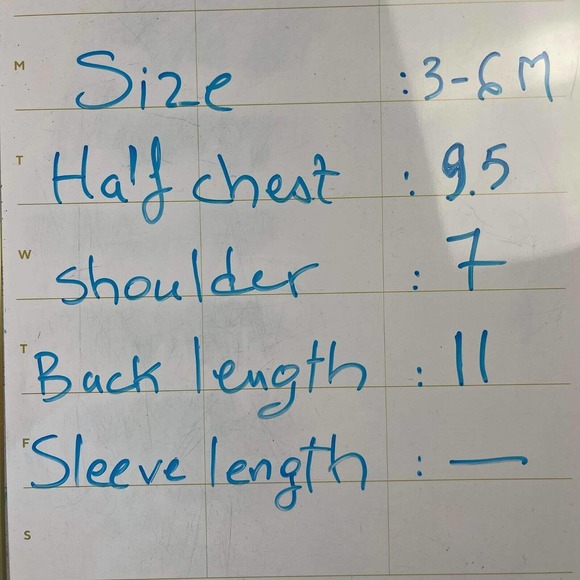 M Size : 3-6 M
T Half chest : 9.5
W shoulder : 7
T Back length : 11
F Sleeve length : —
S